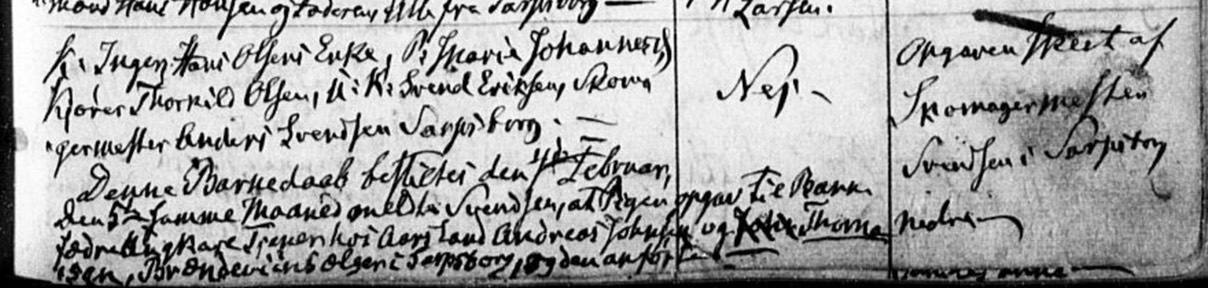 mand Hans Hansen og fra Sarpsborg —
P. Larsen.
K: Inger, Hans Olsens Enke, P: Maria Johannesd,
Kjører Thorkild Olsen, U: K: Svend Eriksen, Skoma
germester Anders Svendsen Sarpsborg. —
Denne Barnedaab bestiltes den 4de Februar,
den 5te samme Maaned meldte Svendsen, at Pigen opgav til Barne
fædre Andreas Johnsen og Thoma
Brændeviinsælger i Sarpsborg, og den anførte
Nej. —
Opgaven skeet af
Skomagermester
Svendsen i Sarpsborg
Nedre —